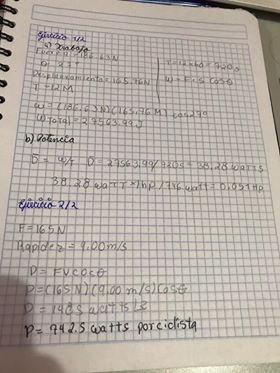 Ejercicio 1/2
a) Trabajo
Fuerza = 186.63N
T = 12×60 = 720s
D = ?
W = F·s Cosθ
Desplazamiento = 165.76N
T = 12M
W = (186.63N)(165.76M) cos27°
W Total = 27563.99J
b) Potencia
P = W/T P = 27563.99/720s = 38.28 watts
38.28 watt × 1hp/746 watt = 0.051Hp
Ejercicio 2/2
F = 165N
Rapidez = 9.00m/s
P = FVCosθ
P = (165N)(9.00 m/s)Cosθ
P = 1485 watts
P = 942.5 watts por ciclista